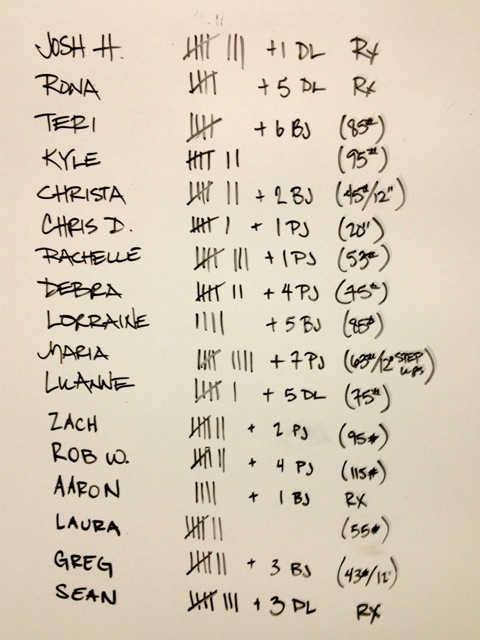 JOSH H. 卌 ||| +1 DL RX
RONA 卌 +5 DL RX
TERI 卌 +6 BJ (85#)
KYLE 卌 || (95#)
CHRISTA 卌 || +2 BJ (45#/12")
CHRIS D. 卌 | +1 PJ (20")
RACHELLE 卌 ||| +1 PJ (53#)
DEBRA 卌 || +4 PJ (45#)
LORRAINE |||| +5 BJ (85#)
MARIA 卌 |||| +7 PJ (63#/12" STEP UPS)
LUANNE 卌 | +5 DL (75#)
ZACH 卌 || + 2 PJ (95#)
ROB W. 卌 || + 4 PJ (115#)
AARON |||| + 1 BJ RX
LAURA 卌 || (55#)
GREG 卌 || + 3 BJ (43#/12")
SEAN 卌 ||| + 3 DL RX